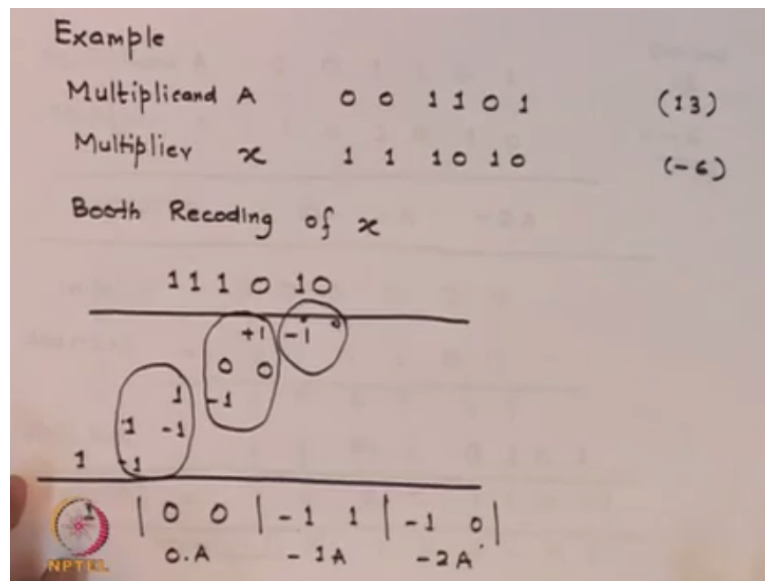 Example
Multiplicand A 0 0 1 1 0 1 (13)
Multiplier x 1 1 1 0 1 0 (-6)
Booth Recoding of x
1 1 1 0 1 0
+1 -1 0
0 0
1 -1
1 -1
1 -1
1 | 0 0 | -1 1 | -1 0 |
0.A -1A -2A
NPTEL